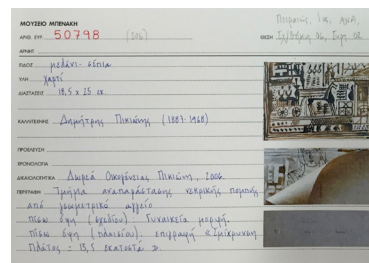 ΜΟΥΣΕΙΟ ΜΠΕΝΑΚΗ
ΑΡΙΘ. ΕΥΡ. 50798 (206)
ΘΕΣΗ Πειραιώς, 1ος, ΑΝΑ,
06, Συρτ. 02
ΑΡΝΗΤ.
ΕΙΔΟΣ μελάνι - σέπια
ΥΛΗ χαρτί
ΔΙΑΣΤΑΣΕΙΣ 18,5 x 25 εκ.
ΚΑΛΛΙΤΕΧΝΗΣ Δημήτρης Πικιώνης (1887-1968)
ΠΡΟΕΛΕΥΣΗ
ΧΡΟΝΟΛΟΓΙΑ
ΔΙΚΑΙΟΛΟΓΗΤΙΚΑ Δωρεά Οικογένειας Πικιώνη, 2006.
ΠΕΡΙΓΡΑΦΗ Τμήμα αναπαράστασης νεκρικής πομπής
από γεωμετρικό αγγείο
πίσω όψη (σχεδίου): Γυναικεία μορφή.
πίσω όψη (πλαισίου): επιγραφή «Σμίκρυνση
Πλάτος = 13,5 εκατοστά».